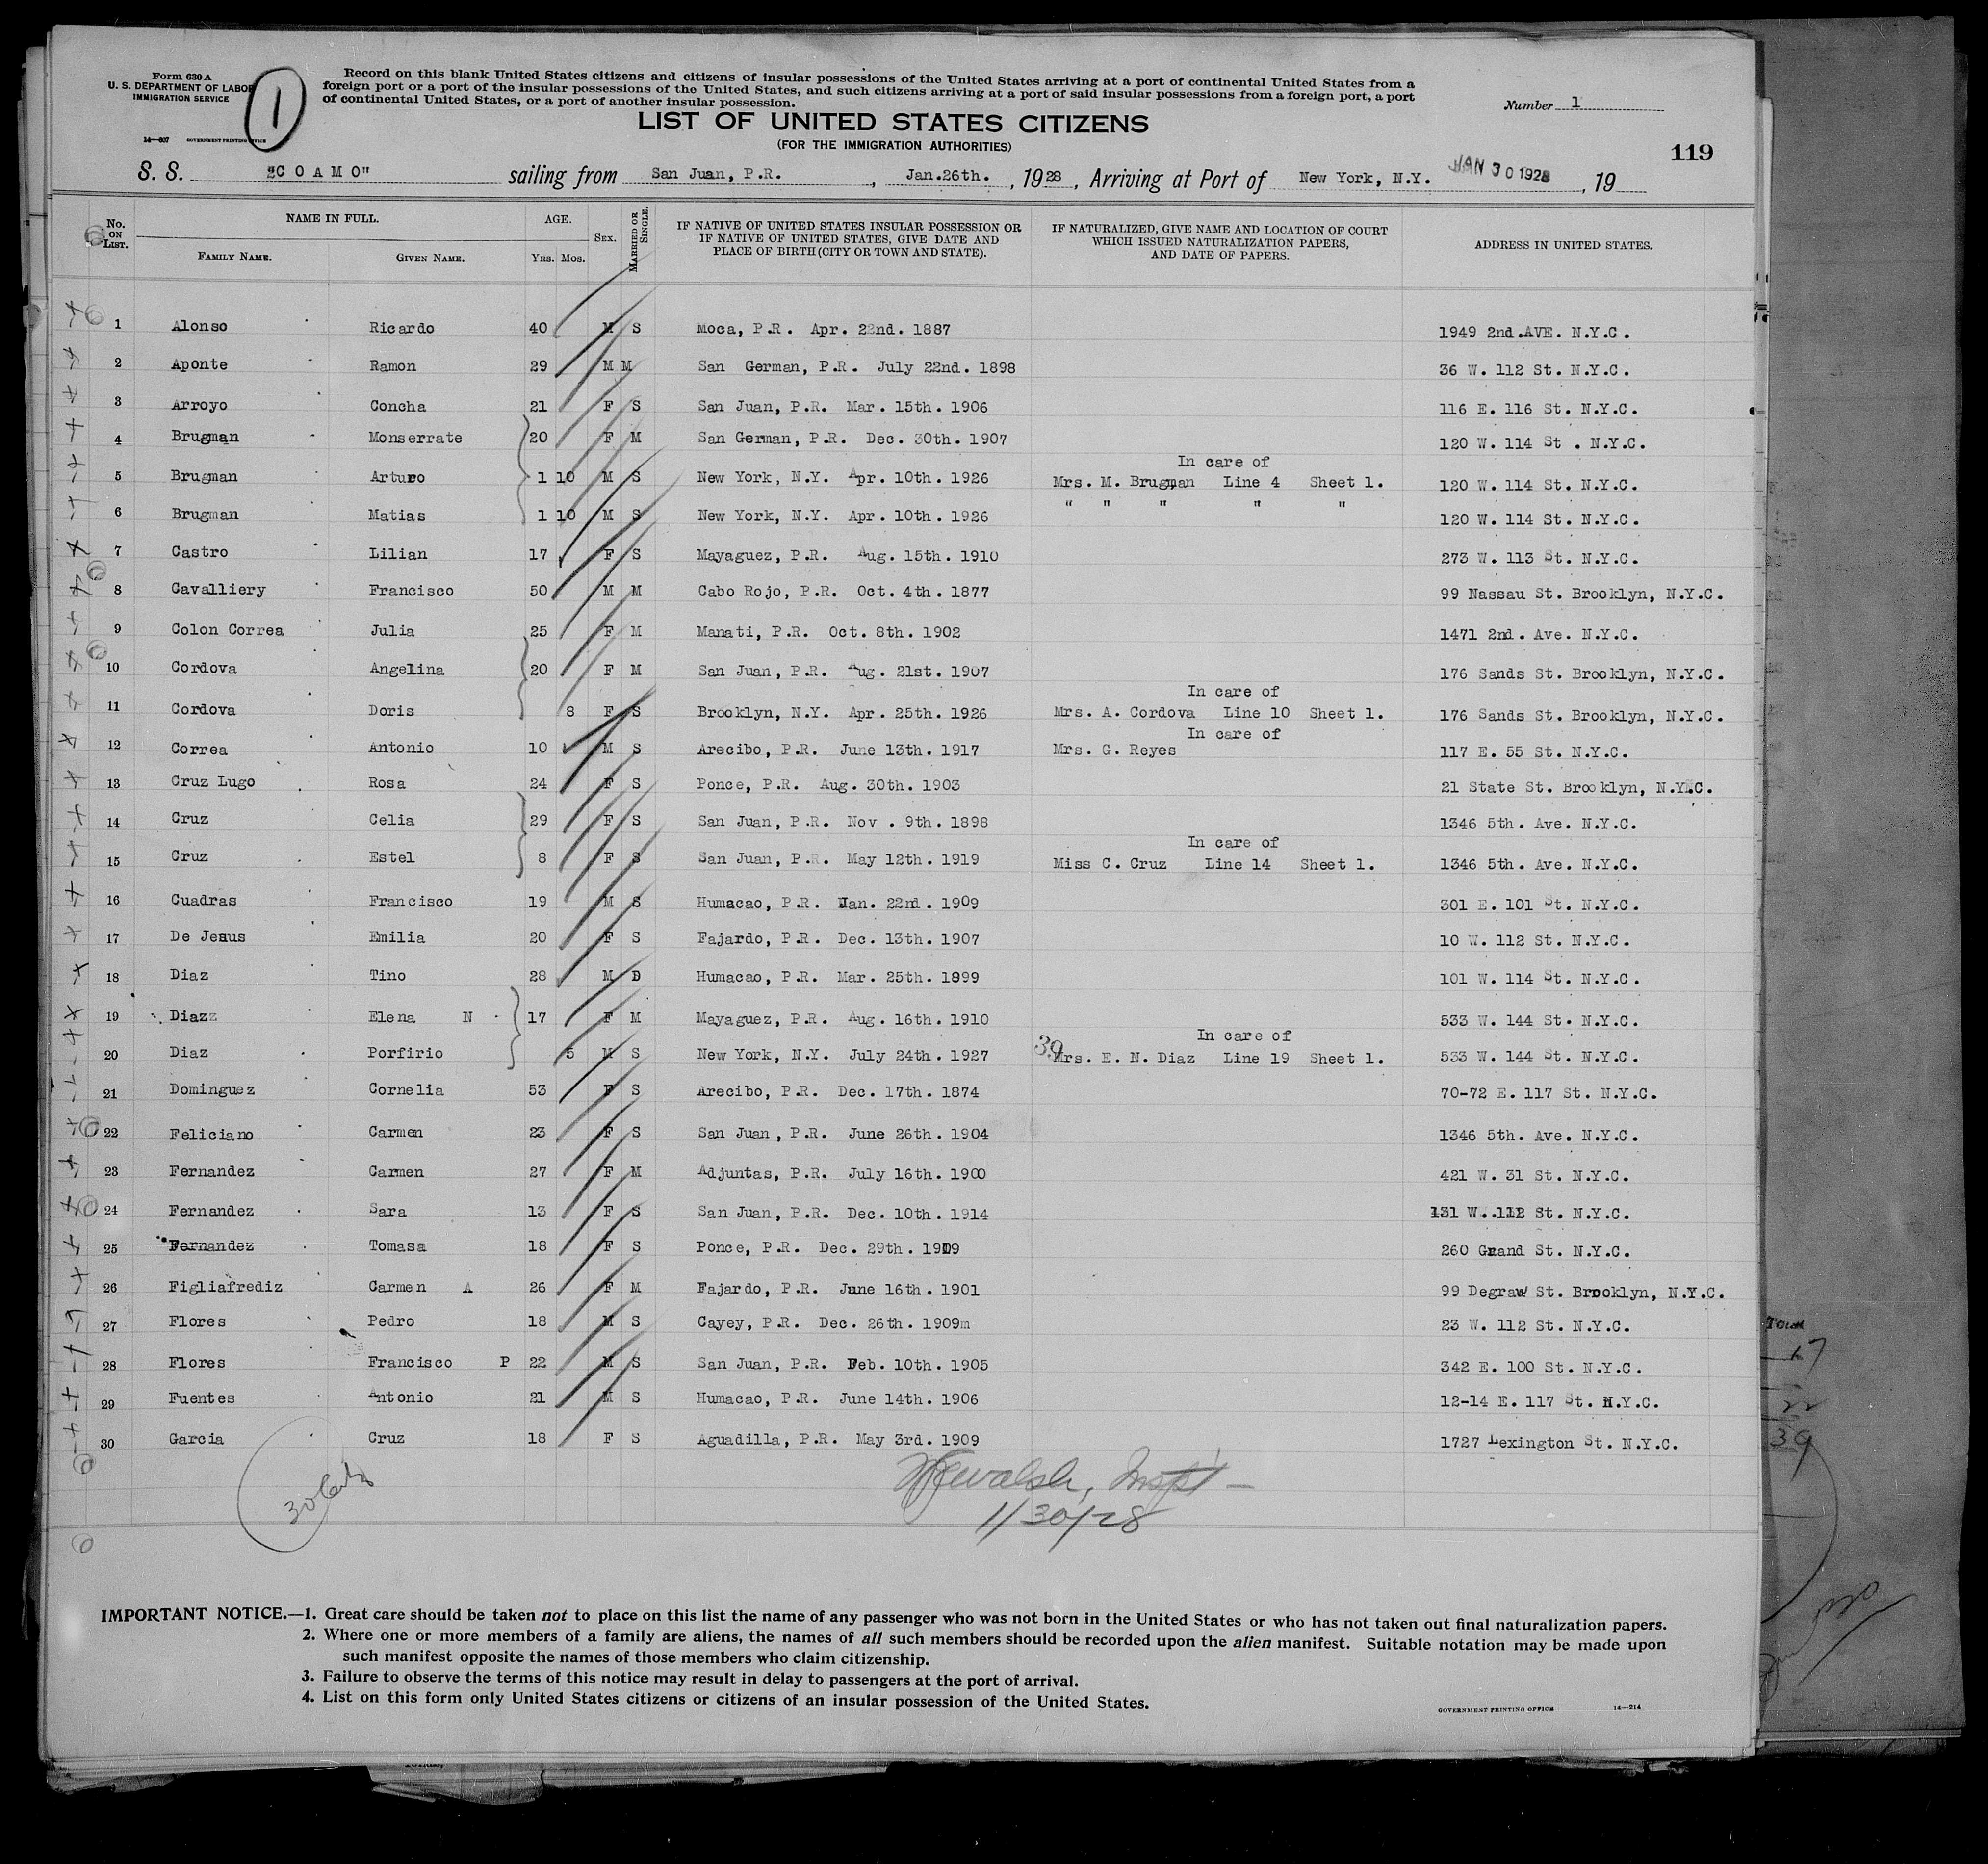 Form 630 A
U. S. DEPARTMENT OF LABOR
IMMIGRATION SERVICE
14—607 GOVERNMENT PRINTING OFFICE
1
Record on this blank United States citizens and citizens of insular possessions of the United States arriving at a port of continental United States from a
foreign port or a port of the insular possessions of the United States, and such citizens arriving at a port of said insular possessions from a foreign port, a port
of continental United States, or a port of another insular possession.
Number 1
LIST OF UNITED STATES CITIZENS
(FOR THE IMMIGRATION AUTHORITIES)
119
S. S. "C O A M O" sailing from San Juan, P.R. , Jan.26th. , 1928 , Arriving at Port of New York, N.Y. JAN 30 1928 , 19
No. ON LIST. NAME IN FULL. AGE. SEX. MARRIED OR SINGLE. IF NATIVE OF UNITED STATES INSULAR POSSESSION OR IF NATIVE OF UNITED STATES, GIVE DATE AND PLACE OF BIRTH (CITY OR TOWN AND STATE). IF NATURALIZED, GIVE NAME AND LOCATION OF COURT WHICH ISSUED NATURALIZATION PAPERS, AND DATE OF PAPERS. ADDRESS IN UNITED STATES.
FAMILY NAME. GIVEN NAME. YRS. MOS.
1 Alonso Ricardo 40 M S Moca, P.R. Apr. 22nd. 1887 1949 2nd.AVE. N.Y.C.
2 Aponte Ramon 29 M M San German, P.R. July 22nd. 1898 36 W. 112 St. N.Y.C.
3 Arroyo Concha 21 F S San Juan, P.R. Mar. 15th. 1906 116 E. 116 St. N.Y.C.
4 Brugman Monserrate 20 F M San German, P.R. Dec. 30th. 1907 120 W. 114 St . N.Y.C.
In care of
5 Brugman Arturo 1 10 M S New York, N.Y. Apr. 10th. 1926 Mrs. M. Brugman Line 4 Sheet 1. 120 W. 114 St. N.Y.C.
6 Brugman Matias 1 10 M S New York, N.Y. Apr. 10th. 1926 " " " " " 120 W. 114 St. N.Y.C.
7 Castro Lilian 17 F S Mayaguez, P.R. Aug. 15th. 1910 273 W. 113 St. N.Y.C.
8 Cavalliery Francisco 50 M M Cabo Rojo, P.R. Oct. 4th. 1877 99 Nassau St. Brooklyn, N.Y.C.
9 Colon Correa Julia 25 F M Manati, P.R. Oct. 8th. 1902 1471 2nd. Ave. N.Y.C.
10 Cordova Angelina 20 F M San Juan, P.R. Aug. 21st. 1907 176 Sands St. Brooklyn, N.Y.C.
In care of
11 Cordova Doris 8 F S Brooklyn, N.Y. Apr. 25th. 1926 Mrs. A. Cordova Line 10 Sheet 1. 176 Sands St. Brooklyn, N.Y.C.
In care of
12 Correa Antonio 10 M S Arecibo, P.R. June 13th. 1917 Mrs. G. Reyes 117 E. 55 St. N.Y.C.
13 Cruz Lugo Rosa 24 F S Ponce, P.R. Aug. 30th. 1903 21 State St. Brooklyn, N.Y.C.
14 Cruz Celia 29 F S San Juan, P.R. Nov . 9th. 1898 1346 5th. Ave. N.Y.C.
In care of
15 Cruz Estel 8 F S San Juan, P.R. May 12th. 1919 Miss C. Cruz Line 14 Sheet 1. 1346 5th. Ave. N.Y.C.
16 Cuadras Francisco 19 M S Humacao, P.R. Jan. 22nd. 1909 301 E. 101 St. N.Y.C.
17 De Jesus Emilia 20 F S Fajardo, P.R. Dec. 13th. 1907 10 W. 112 St. N.Y.C.
18 Diaz Tino 28 M D Humacao, P.R. Mar. 25th. 1899 101 W. 114 St. N.Y.C.
19 Diazz Elena N 17 F M Mayaguez, P.R. Aug. 16th. 1910 533 W. 144 St. N.Y.C.
In care of
20 Diaz Porfirio 5 M S New York, N.Y. July 24th. 1927 39 Mrs. E. N. Diaz Line 19 Sheet 1. 533 W. 144 St. N.Y.C.
21 Dominguez Cornelia 53 F S Arecibo, P.R. Dec. 17th. 1874 70-72 E. 117 St. N.Y.C.
22 Feliciano Carmen 23 F S San Juan, P.R. June 26th. 1904 1346 5th. Ave. N.Y.C.
23 Fernandez Carmen 27 F M Adjuntas, P.R. July 16th. 1900 421 W. 31 St. N.Y.C.
24 Fernandez Sara 13 F S San Juan, P.R. Dec. 10th. 1914 131 W..112 St. N.Y.C.
25 Fernandez Tomasa 18 F S Ponce, P.R. Dec. 29th. 1909 260 Grand St. N.Y.C.
26 Figliafrediz Carmen A 26 F M Fajardo, P.R. June 16th. 1901 99 Degraw St. Brooklyn, N.Y.C.
27 Flores Pedro 18 M S Cayey, P.R. Dec. 26th. 1909m 23 W. 112 St. N.Y.C.
28 Flores Francisco P 22 M S San Juan, P.R. Feb. 10th. 1905 342 E. 100 St. N.Y.C.
29 Fuentes Antonio 21 M S Humacao, P.R. June 14th. 1906 12-14 E. 117 St. N.Y.C.
30 Garcia Cruz 18 F S Aguadilla, P.R. May 3rd. 1909 1727 Lexington St. N.Y.C.
Walsh, Inspt
1/30/28
30
IMPORTANT NOTICE.—1. Great care should be taken not to place on this list the name of any passenger who was not born in the United States or who has not taken out final naturalization papers.
2. Where one or more members of a family are aliens, the names of all such members should be recorded upon the alien manifest. Suitable notation may be made upon
such manifest opposite the names of those members who claim citizenship.
3. Failure to observe the terms of this notice may result in delay to passengers at the port of arrival.
4. List on this form only United States citizens or citizens of an insular possession of the United States.
GOVERNMENT PRINTING OFFICE 14—214
17
22
39